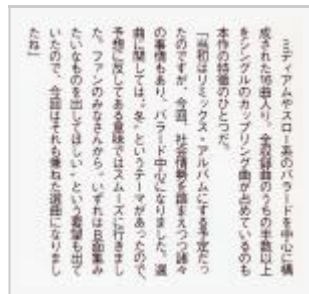 ミディアムやスロー系のバラードを中心に構
成された16曲入り。全収録曲のうちの半数以上
をシングルのカップリング曲が占めているのも
本作の特徴のひとつだ。
「当初はリミックス・アルバムにする予定だっ
たのですが、今回、社会情勢を踏まえつつ諸々
の事情もあり、バラード中心になりました。選
曲に関しては“冬”というテーマがあったので、
予想に反してある意味ではスムーズに行きまし
た。ファンのみなさんから“いずれはB面集み
たいなものを出してほしい”という希望も出て
いたので、今回はそれも兼ねた選曲になりまし
たね」